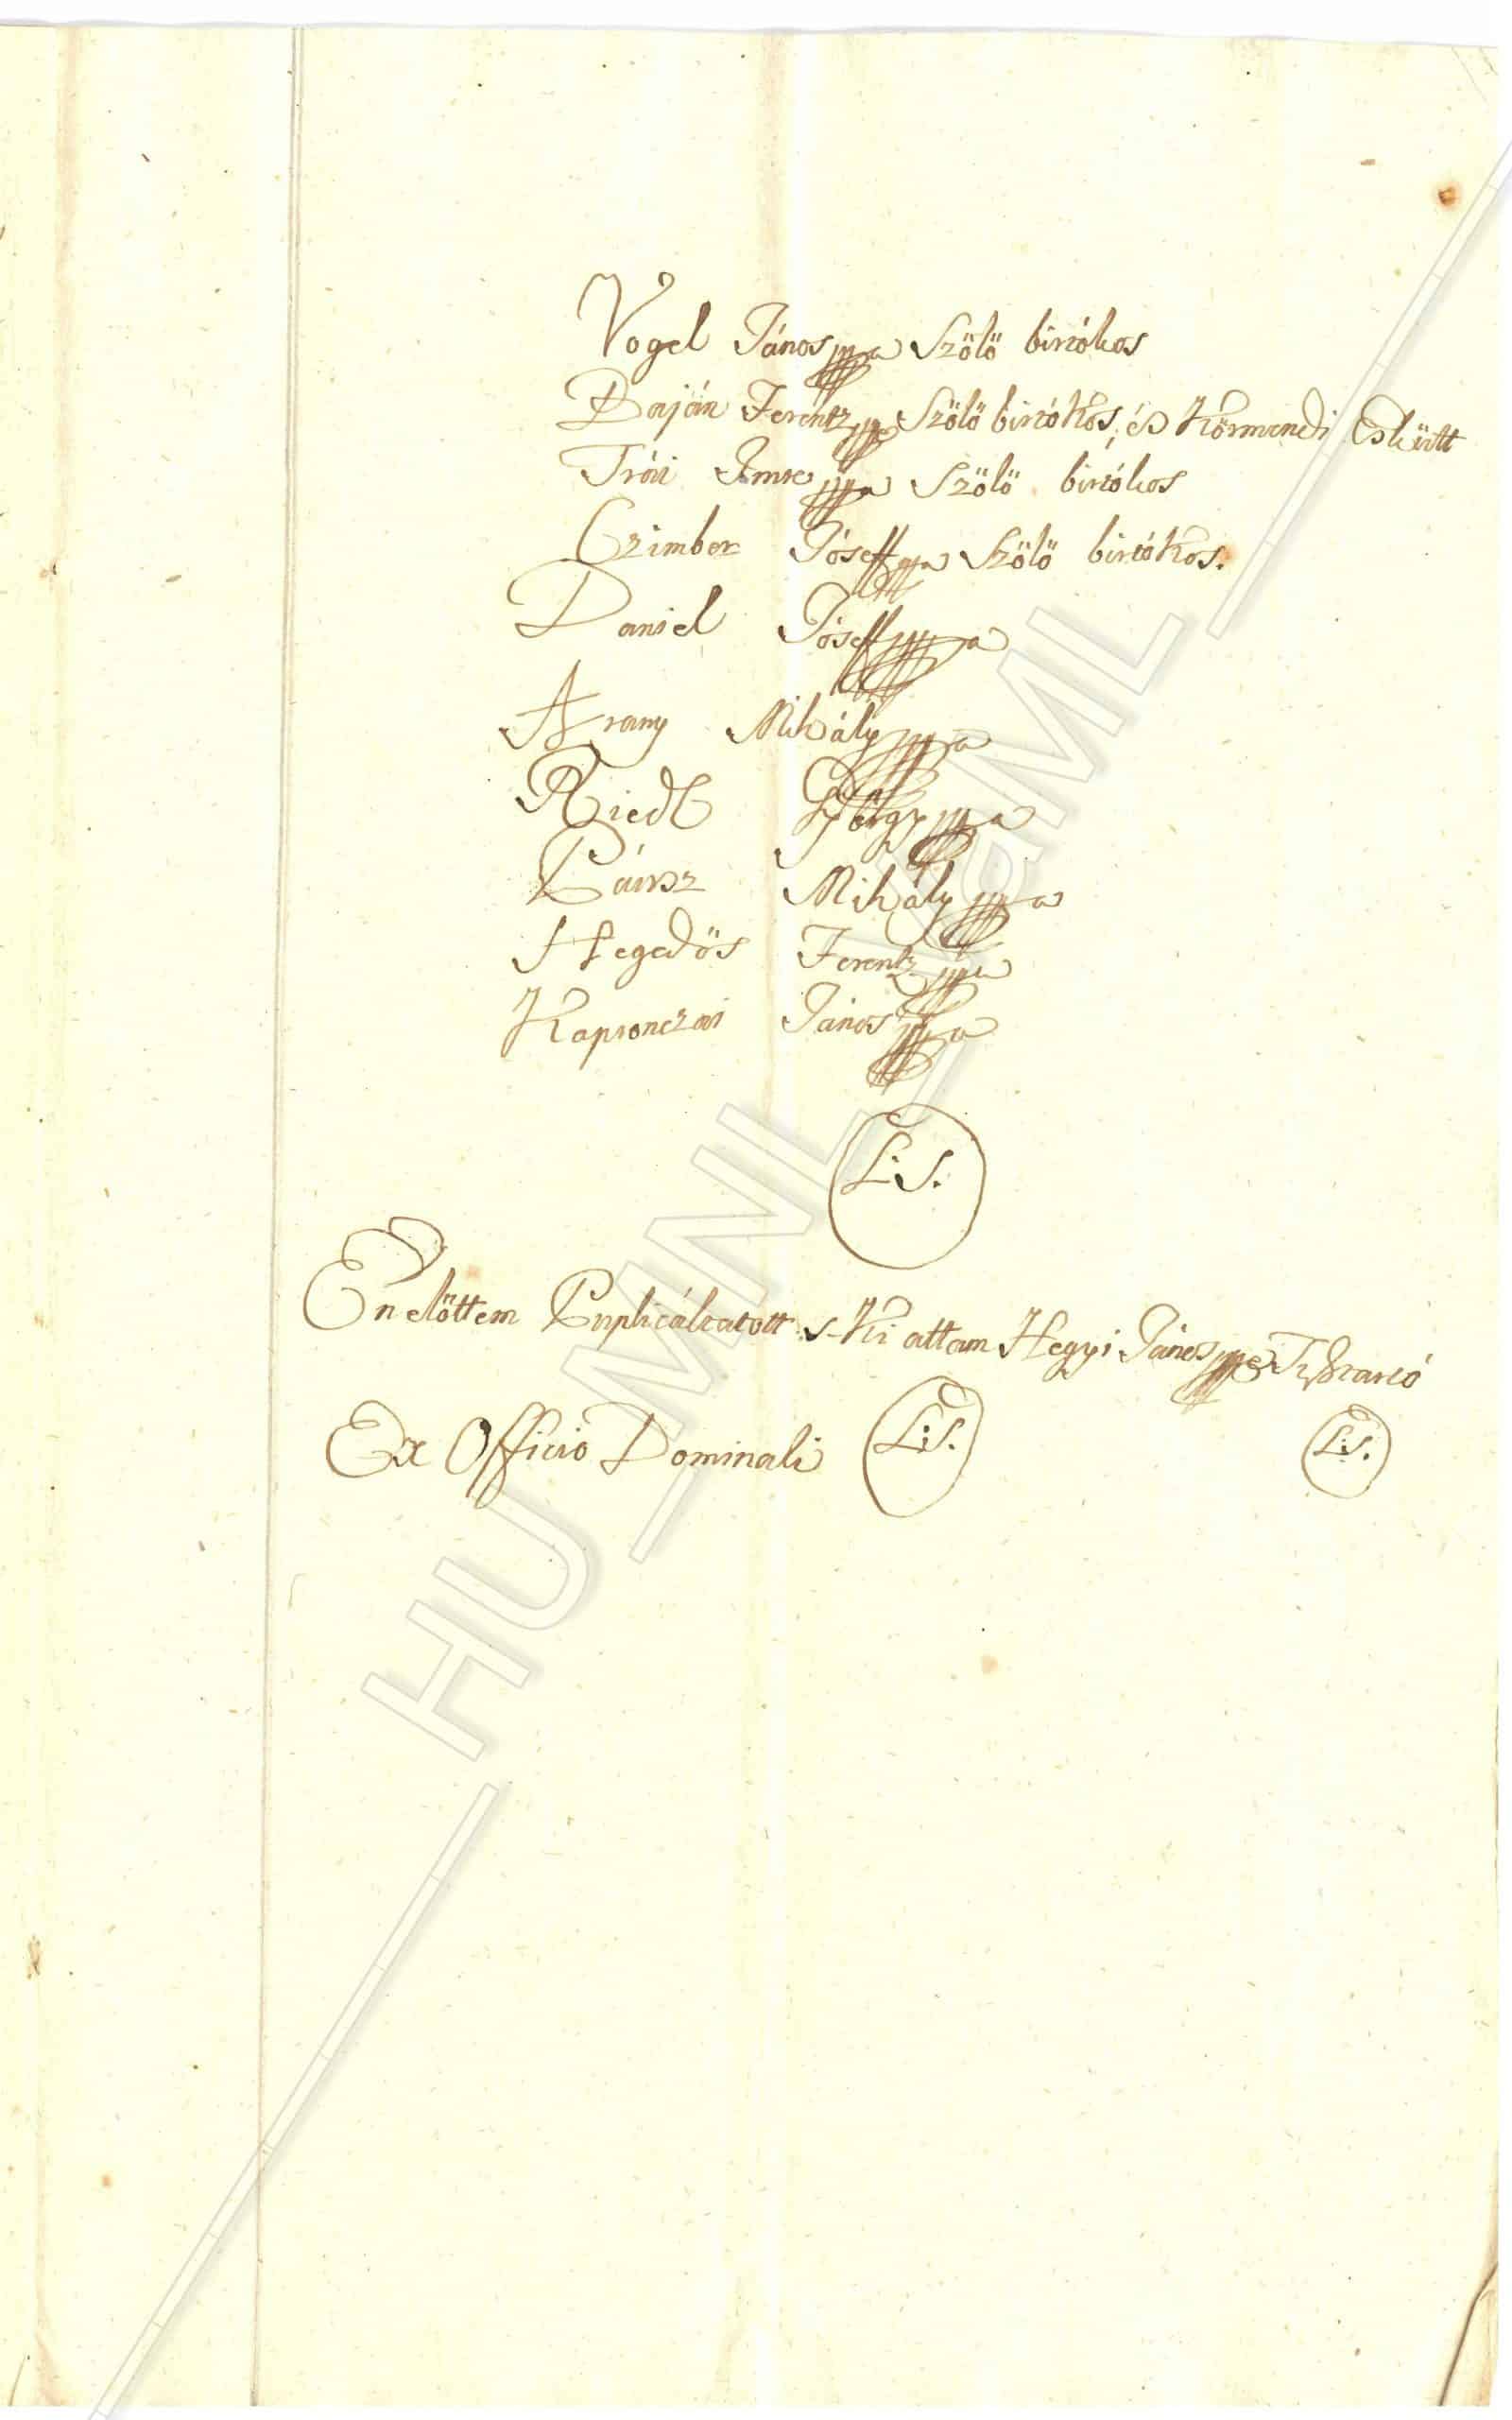 Vogel János mpa Szölö birtokos
Baján Ferentz mpa Szölö birtokos, és Körmendi Esküitt
Trói Imre mpa Szölö birtokos
Czimber Jóseff mpa Szölö birtokos.
Daniel Jóseff mpa
Arany Mihály mpa
Riedl György mpa
Mihály mpa
Hegedös Ferentz mpa
Kapronczai János mpa
L:S.
Én elöttem s-Ki attam Hegyi János mpa
Ex Officio Dominali L:S. L:S.
HU_MNL_VaML_